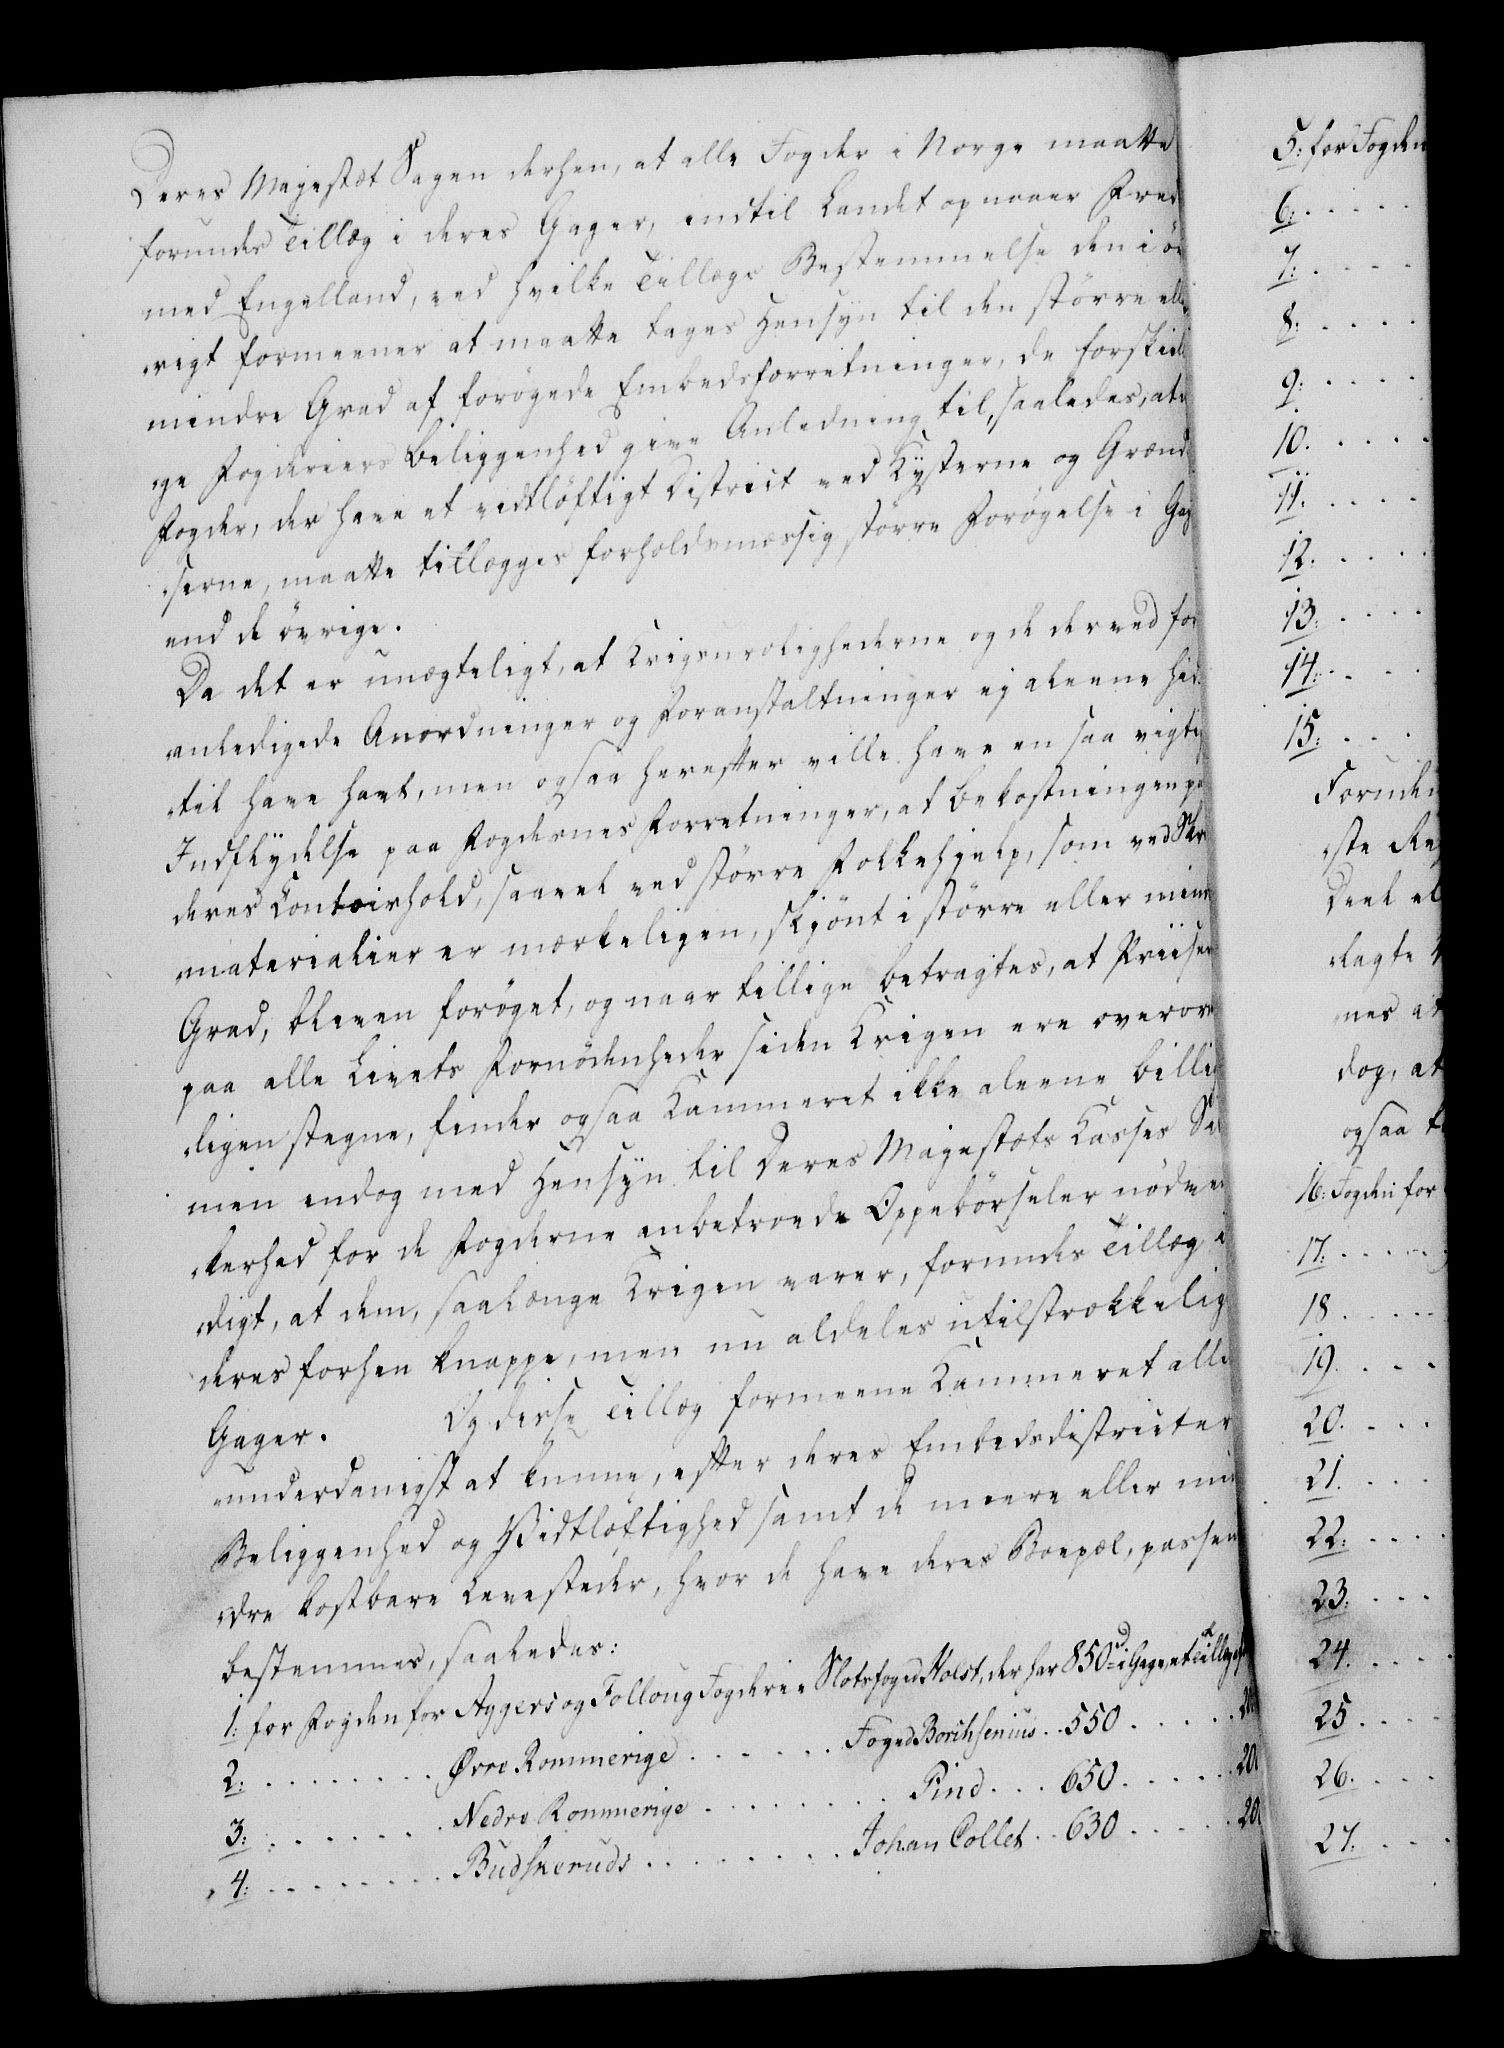 Deres Majestæt Sagen derhen, at alle Fogder i Norge maatte
forundes Tillæg i deres Gager, indtil Landet opnaaer Fred
med Engelland, ved hvilke Tillægs Bestemmelse den i øv
„rigt formeener at maatte tages Hensyn til den større elle
mindre Grad af forøgede Embedsforretninger, de forskiell
„ge Fogderiers Beliggenhed give Anledning til, saaledes, at
Fogder, der have et vidtløftigt District ved Kysterne og Grænd
„serne, maatte tillægges forholdsmæssig større Forøgelse i Gag
end de øvrige.
Da det er unægteligt, at Krigsurolighederne og de derved for
„anledigede Anordninger og Foranstaltninger ej aleene hid
„til have havt, men ogsaa herefter ville have en saa vigtig
Indflydelse paa Fogdernes Forretninger, at Bekostningen paa
deres Contoirhold, saavel ved større Folkehjelp, som ved Skri
„materialier er mærkeligen, skjønt i større eller mind
Grad, bleven forøget, og naar tillige betragtes, at Priiser
paa alle Livets Fornødenheder siden Krigen ere overord
„ligen stegne, finder ogsaa Kammeret ikke aleene billig
men endog med Hensyn til Deres Majestæts Kasses Sik
„kerhed for de Fogderne anbetroede Oppebørseler nødven
„digt, at dem, saalænge Krigen varer, forundes Tillæg i
deres forhen knappe, men nu aldeles utilstrækkelig
Gager. Og disse Tillæg formeene Kammeret alle
„underdanigst at kunne, efter deres Embedsdistricter
Beliggenhed og Vidtløftighed samt de meere eller min
„dre kostbare Levesteder, hvor de have deres Boepæl, passen
bestemmes, saaledes:
1: for Fogden for Aggers og Folloug Fogderie Slotsfoged Holst, der har 850 rd i Gage, et Tillæg af
2: . . . . . . . . Øvre Rommerige . . . . . . Foged Borchsenius . . 550 . . . . . 20
3: . . . . . . . Nedre Rommerige . . . . . . . . Pind . . . 650 . . . . . 20
4: . . . . . . . . Budskeruds . . . . . . . . Johan Collet . . 630 . . . . . 20
5: for Fogden
6: . . . . .
7: . . . .
8: . . . .
9: . . . .
10. . . . .
11. . . . .
12. . . . .
13: . . . .
14: . . . .
15: . . .
Foruden
„ste Re
Deel el
„lagte
„nes at
dog, at
ogsaa t
16: Fogden for
17: . . . . .
18 . . . . .
19. . . .
20. . . .
21. . . .
22: . . . .
23: . . .
24. . . . .
25 . . . .
26. . . . .
27. . . .